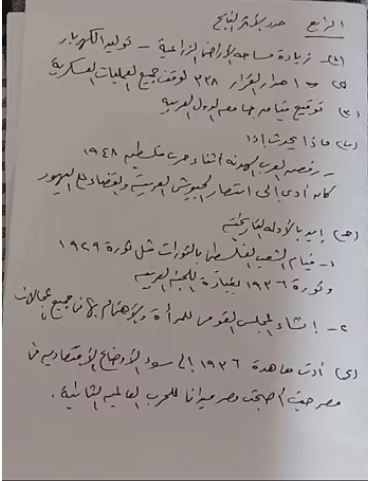 الرابع حدد الأثر الناتج
(1) زيادة مساحة الأراضى الزراعية - توليد الكهرباء
(2) اصدار القرار ٣٣٨ لوقف جميع العمليات العسكرية
(3) توقيع ميثاق جامعة الدول العربية
(ب) ماذا يحدث إذا
- رفض العرب الهدنة أثناء حرب فلسطين ١٩٤٨
كان أدى إلى انتصار الجيوش العربية والقضاء على اليهود
(ج) أيد بالأدلة التاريخية
١- قيام الشعب الفلسطينى بالثورات مثل ثورة ١٩٢٩
وثورة ١٩٣٦ بقيادة اللجنة العربية
٢- انشاء المجلس القومى للمرأة والاهتمام بها فى جميع المجالات
(د) أدت معاهدة ١٩٣٦ إلى سوء الأوضاع الاقتصادية فى
مصر حيث أصبحت مصر ميدانا للحرب العالمية الثانية.